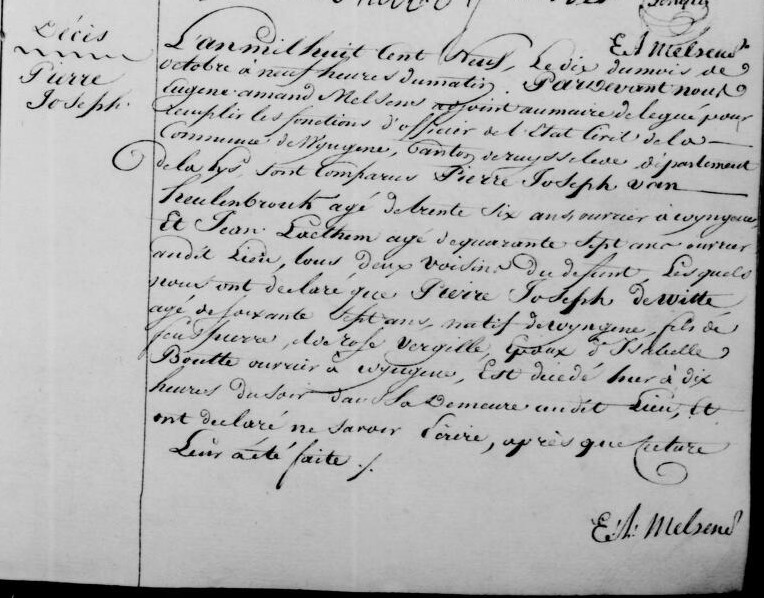 Décès
Pierre
Joseph.
E A Melsens
L'an mil huit cent Neuf, Le dix du mois de
octobre à neuf heures du matin. Pardevant nous
Eugene amand Melsens adjoint au maire delegué pour
remplir les fonctions d'officier de l'Etat Civil de la
Commune de Wyngene, Canton de ruysselede, département
de la Lys, sont Comparus Pierre Joseph van
heulenbrouk agé de trente six ans ouvrier à wyngene,
Et Jean Laethem agé de quarante sept ans ouvrier
audit Lieu, tous deux voisins du defunt, Lesquels
nous ont déclaré que Pierre Joseph de witte
agé de soixante sept ans, natif de wyngene, fils de
feus pierre, et de rose vergille, Epoux d'Isabelle
Boutte ouvrier à wyngene, Est decedé hier à dix
heures du soir dans sa Demeure audit Lieu, Et
ont declaré ne savoir Ecrire, après que lecture
Leur a été faite ./.
E. A. Melsens